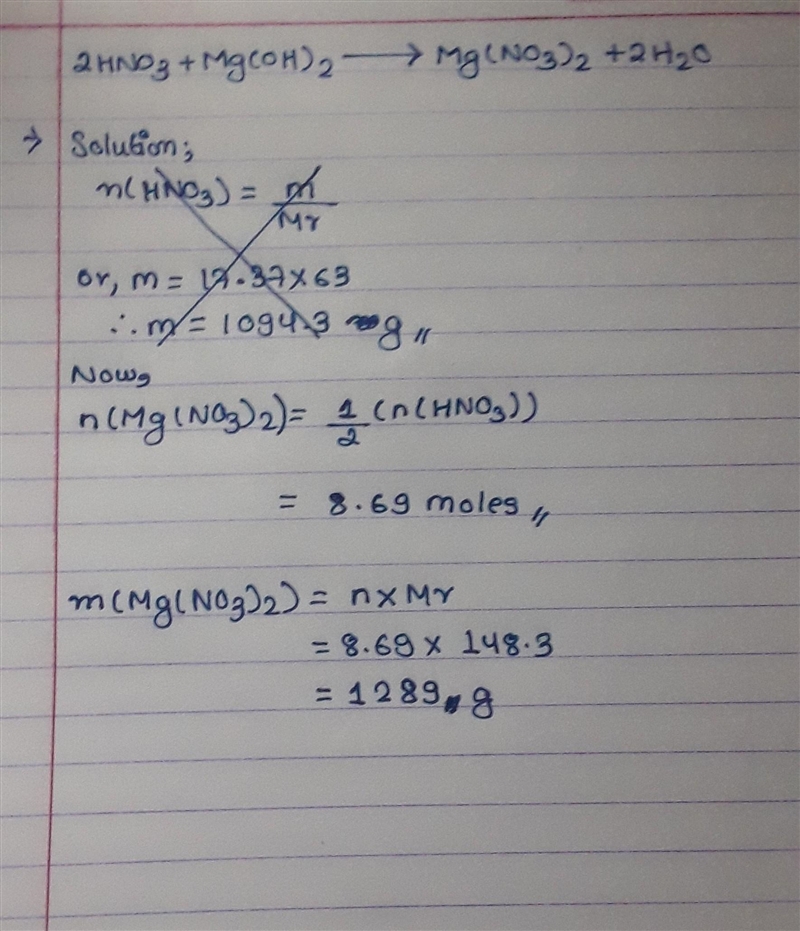 2HNO3 + Mg(OH)2 ⟶ Mg(NO3)2 + 2H2O
→ Solution;
n(HNO3) = m/Mr
or, m = 17.37 × 63
∴ m = 1094.3 g,,
Now,
n(Mg(NO3)2) = 1/2 (n(HNO3))
= 8.69 moles,,
m(Mg(NO3)2) = n × Mr
= 8.69 × 148.3
= 1289 g